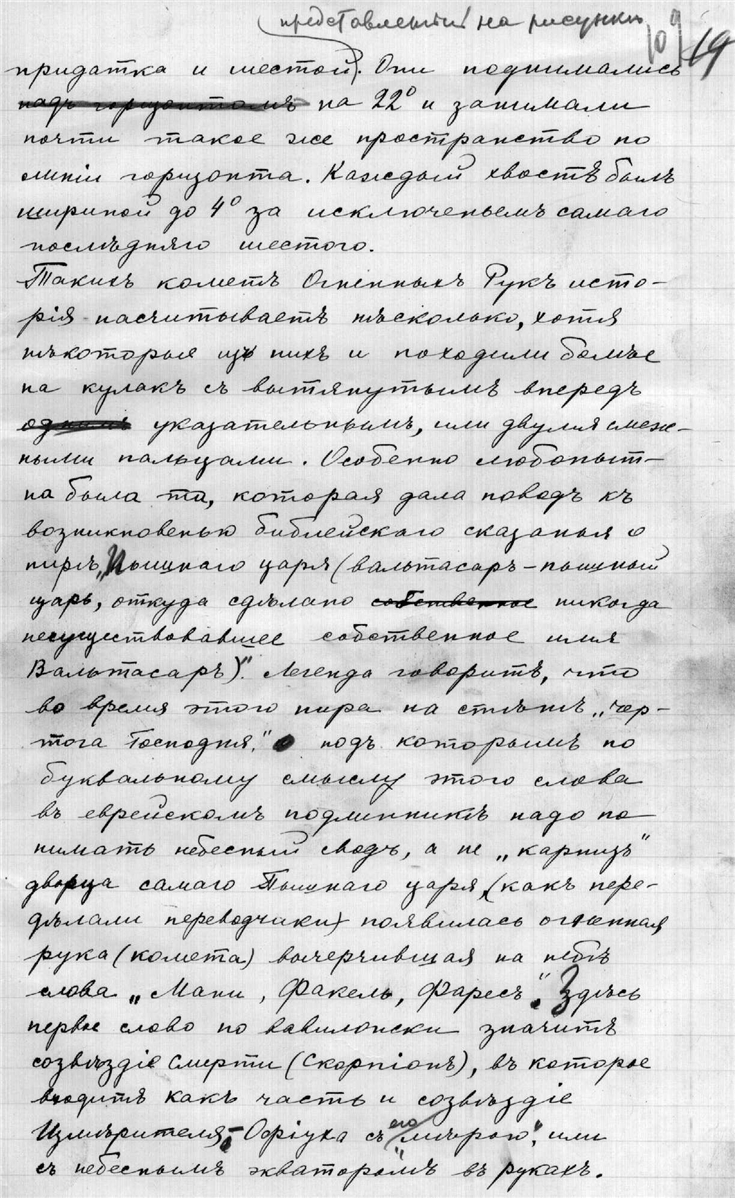 представленный на рисунке
109 19
придатка и шестой). Они поднимались
надъ горизонтомъ на 22° и занимали
почти такое же пространство по
линіи горизонта. Каждый хвостъ былъ
шириной до 4° за исключеньемъ самаго
послѣдняго шестого.
Такихъ кометъ Огненныхъ Рукъ исто-
рія насчитываетъ нѣсколько, хотя
нѣкоторые изъ нихъ и походили болѣе
на кулакъ съ вытянутымъ впередъ
однимъ указательнымъ, или двумя смеж-
ными пальцами. Особенно любопыт-
на была та, которая дала поводъ къ
возникновенью библейскаго сказанья о
пирѣ „Пышнаго царя (валтасаръ – пышный
царь, откуда сдѣлано собственное никогда
несуществовавшее собственное имя
Валтасаръ)". Легенда говоритъ, что
во время этого пира на стѣнѣ „чер-
тога Господня," подъ которымъ по
буквальному смыслу этого слова
въ еврейскомъ подлинникѣ надо по
нимать небесный сводъ, а не „карнизъ"
дворца самаго Пышнаго царя, (какъ пере-
дѣлали переводчики) появилась огненная
рука (комета) вычерчившая на небѣ
слова „Мани, Факелъ, Фаресъ". Здѣсь
первое слово по вавилонски значитъ
созвѣздіе Смерти (Скорпіонъ), въ которое
входитъ какъ часть и созвѣздіе
Измѣрителя, – Офіуха съ его „мѣрою", или
съ небеснымъ „экваторомъ" въ рукахъ.